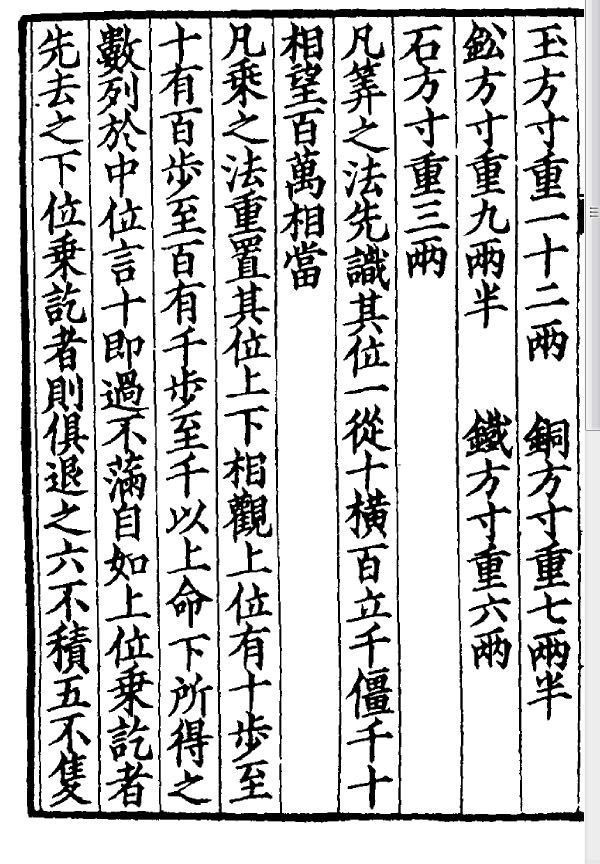 玉方寸重一十二兩　銅方寸重七兩半
鈆方寸重九兩半　鐵方寸重六兩
石方寸重三兩
凡筭之法先識其位一從十橫百立千僵千十
相望百萬相當
凡乘之法重置其位上下相觀上位有十步至
十有百步至百有千步至千以上命下所得之
數列於中位言十即過不滿自如上位乘訖者
先去之下位乘訖者則俱退之六不積五不隻